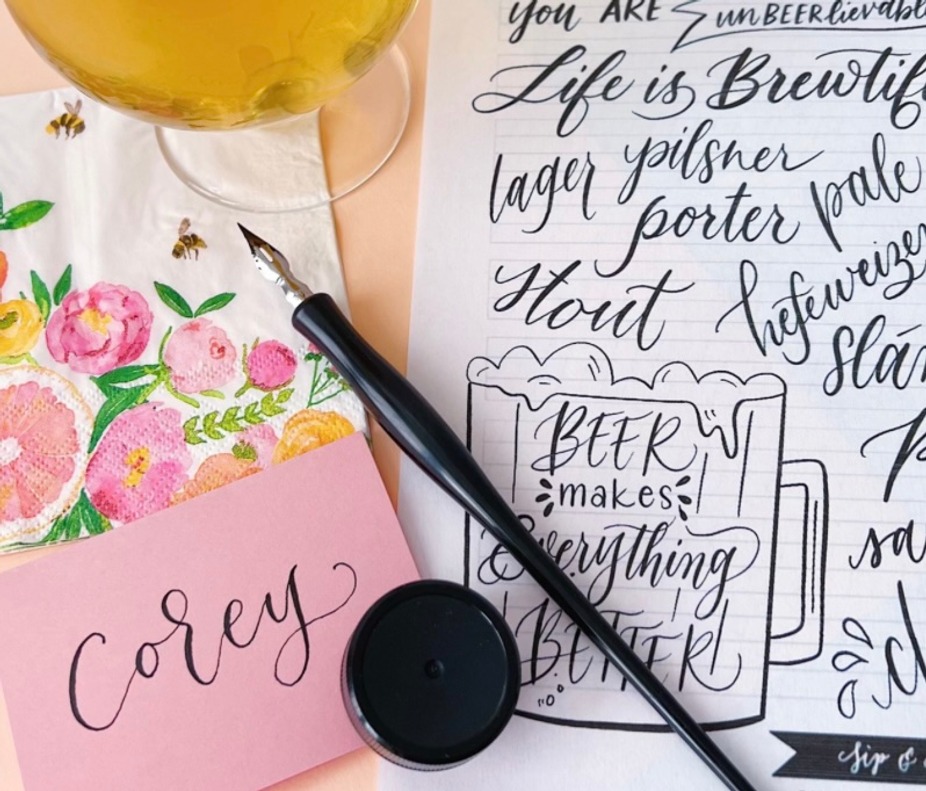 you ARE unBEERlievabl
Life is Brewtif
lager pilsner
porter pale
Stout hefeweizen
Slá
BEER
makes
Everything
BETTER!
sa
Sip &
Corey